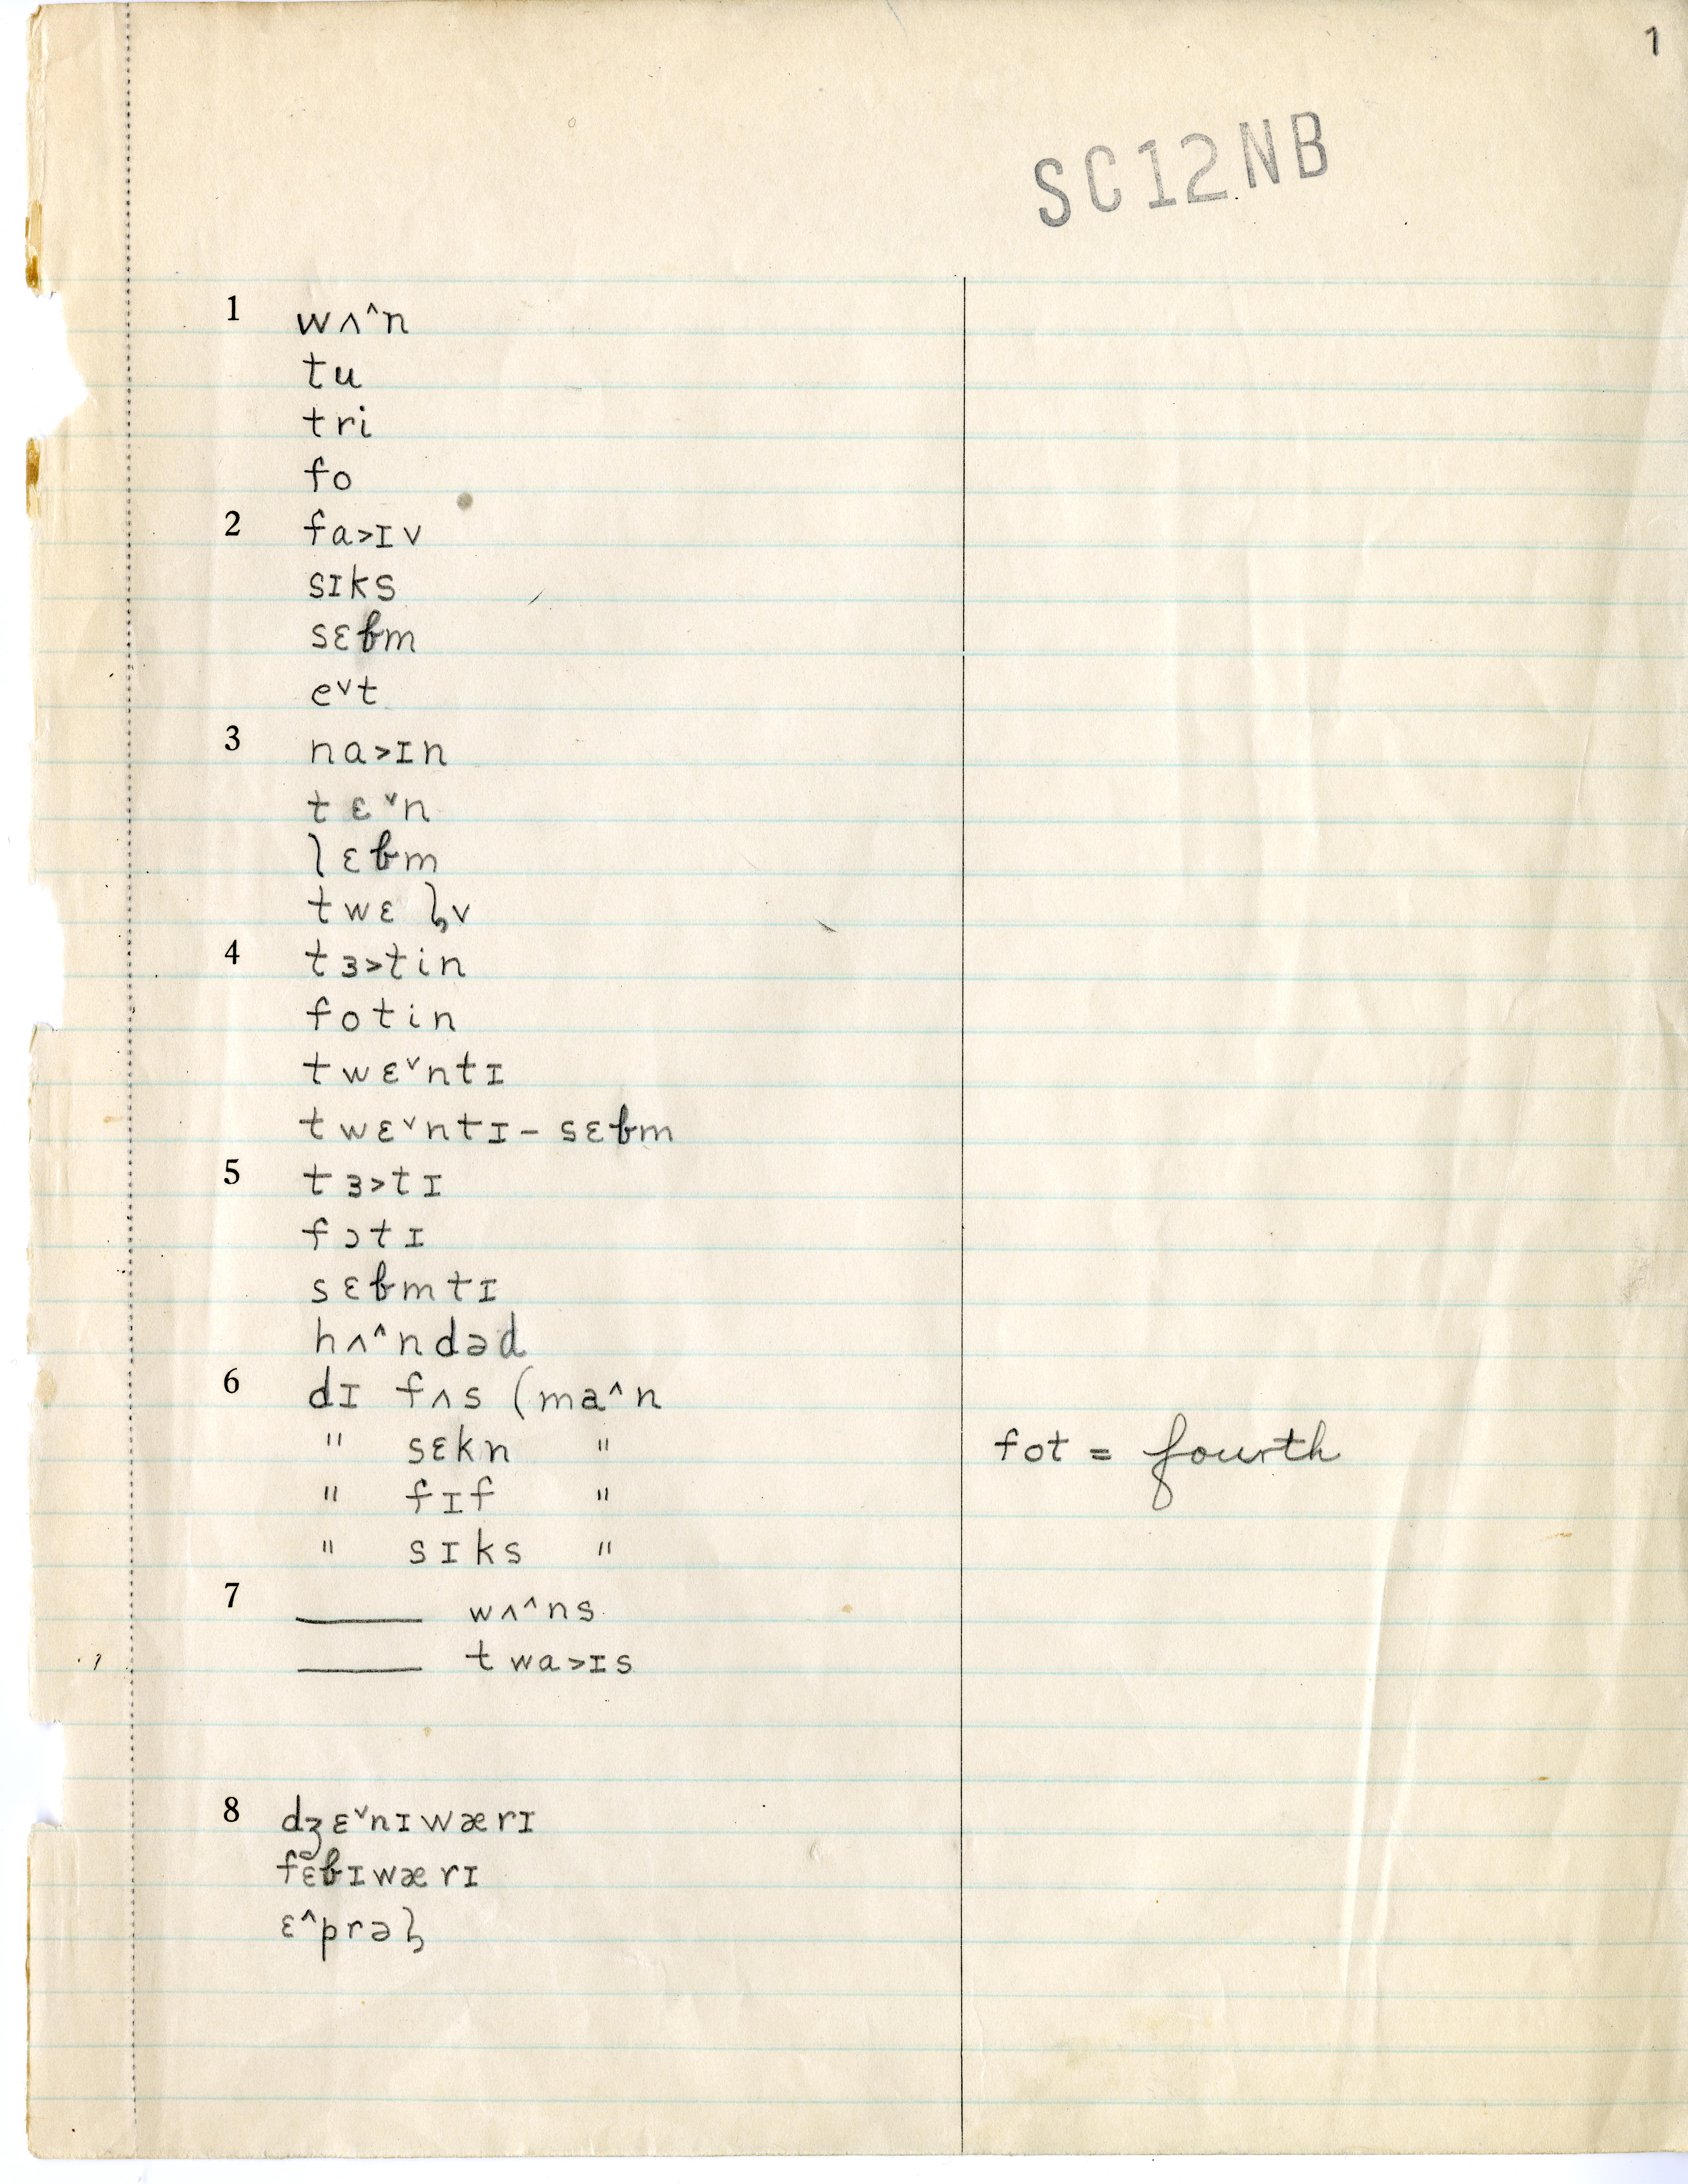 1
SC12NB
1 wʌ^n
tu
tri
fo
2 fa>ɪv
sɪks
sɛɓm
e˅t
3 na>ɪn
tɛ˅n
lɛɓm
twɛɮv
4 tɜ>tin
fotin
twɛ˅ntɪ
twɛ˅ntɪ-sɛɓm
5 tɜ>tɪ
fɔtɪ
sɛɓmtɪ
hʌ^ndəd
6 dɪ fʌs (ma^n
" sɛkn "
fot = fourth
" fɪf "
" sɪks "
7 ____ wʌ^ns
____ twa>ɪs
8 dʒɛ˅nɪwærɪ
fɛɓɪwærɪ
ɛ^prəɮ